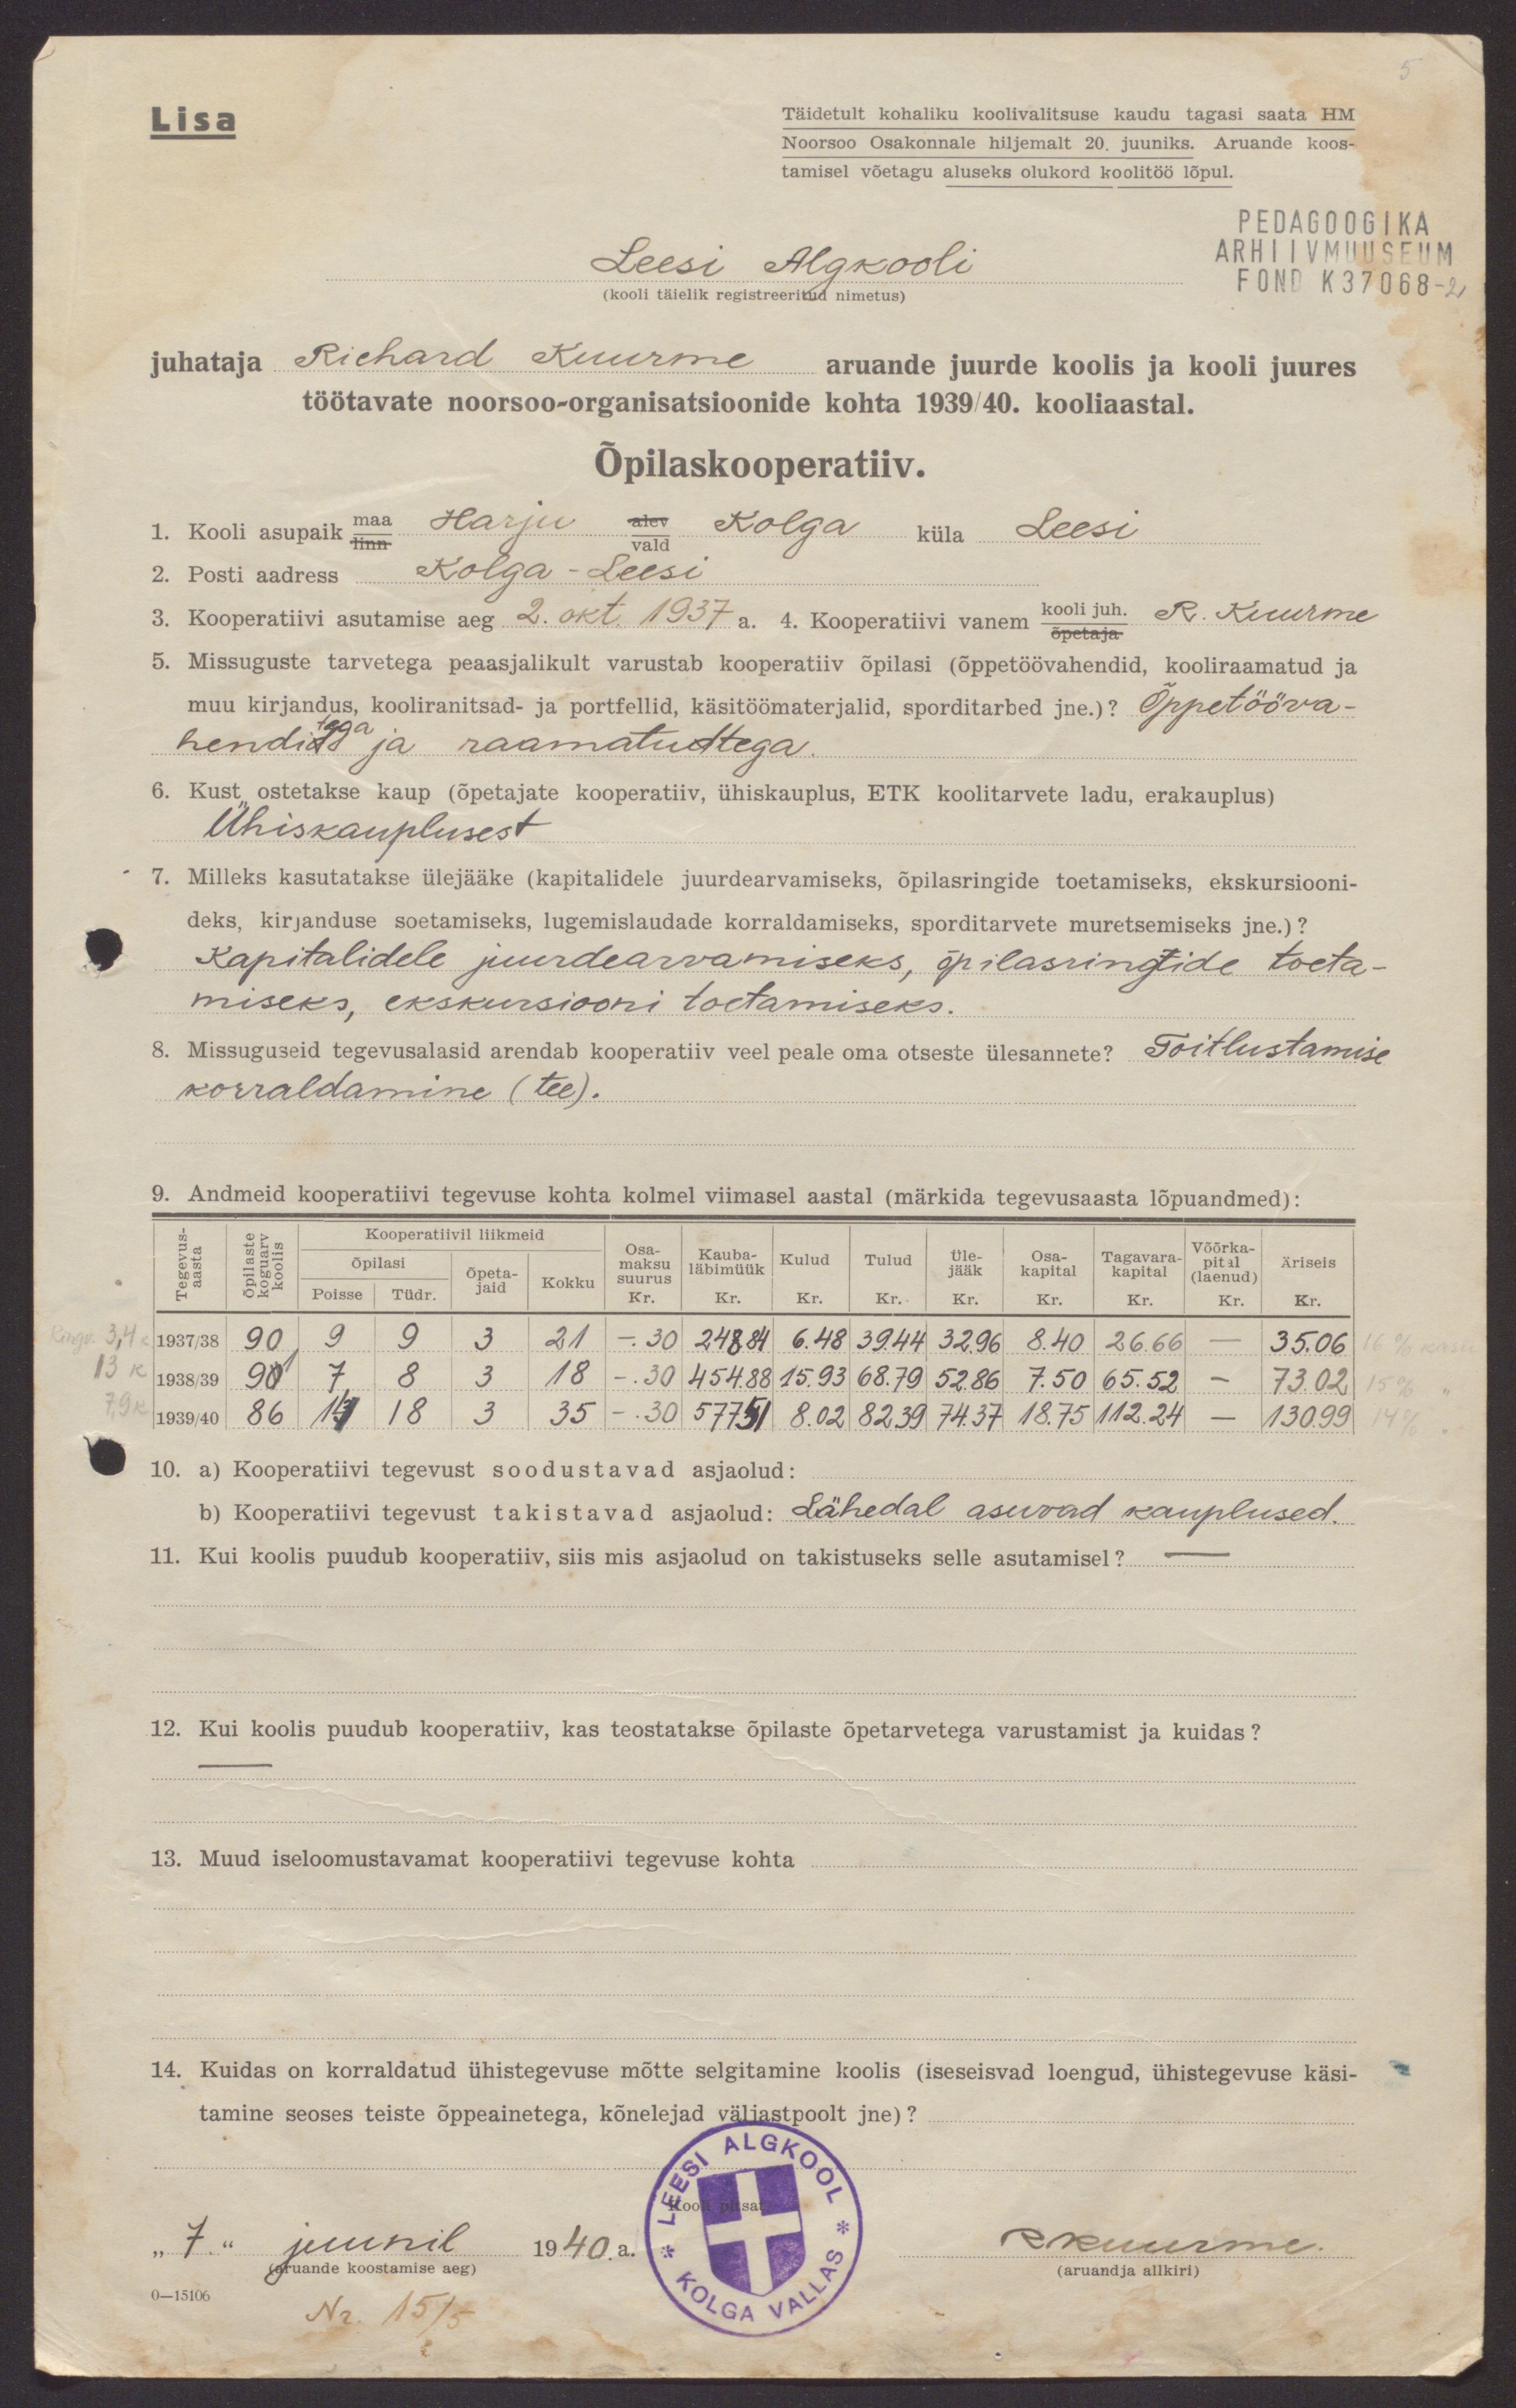 5
Lisa
Täidetult kohaliku koolivalitsuse kaudu tagasi saata HM
Noorsoo Osakonnale hiljemalt 20. juuniks. Aruande koos-
tamisel võetagu aluseks olukord koolitöö lõpul.
PEDAGOOGIKA
ARHIIVMUUSEUM
FOND K37068-2
Leesi Algkooli
(kooli täielik registreeritud nimetus)
juhataja Richard Kuurme aruande juurde koolis ja kooli juures
töötavate noorsoo-organisatsioonide kohta 1939/40. kooliaastal.
Õpilaskooperatiiv.
1. Kooli asupaik maa linn Harju alev vald Kolga küla Leesi
2. Posti aadress Kolga-Leesi
3. Kooperatiivi asutamise aeg 2. okt. 1937 a. 4. Kooperatiivi vanem kooli juh. õpetaja R. Kuurme
5. Missuguste tarvetega peaasjalikult varustab kooperatiiv õpilasi (õppetöövahendid, kooliraamatud ja
muu kirjandus, kooliranitsad- ja portfellid, käsitöömaterjalid, sporditarbed jne.)? Õppetööva-
henditega ja raamatutega.
6. Kust ostetakse kaup (õpetajate kooperatiiv, ühiskauplus, ETK koolitarvete ladu, erakauplus)
Ühiskauplusest
7. Milleks kasutatakse ülejääke (kapitalidele juurdearvamiseks, õpilasringide toetamiseks, ekskursiooni-
deks, kirjanduse soetamiseks, lugemislaudade korraldamiseks, sporditarvete muretsemiseks jne.)?
Kapitalidele juurdearvamiseks, õpilasringide toeta-
miseks, ekskursiooni toetamiseks.
8. Missuguseid tegevusalasid arendab kooperatiiv veel peale oma otseste ülesannete? Toitlustamise
korraldamine (tee).
9. Andmeid kooperatiivi tegevuse kohta kolmel viimasel aastal (märkida tegevusaasta lõpuandmed):
Tegevus-aasta Õpilaste koguarv koolis Kooperatiivil liikmeid õpilasi Poisse Tüdr. õpeta-jaid Kokku Osa-maksu suurus Kr. Kauba-läbimüük Kr. Kulud Kr. Tulud Kr. Üle-jääk Kr. Osa-kapital Kr. Tagavara-kapital Kr. Võõrka-pital (laenud) Kr. Äriseis Kr.
3,4 k 1937/38 90 9 9 3 21 -.30 248.84 6.48 39.44 32.96 8.40 26.66 — 35.06 16%
13 k 1938/39 91 7 8 3 18 -.30 454.88 15.93 68.79 52.86 7.50 65.52 — 73.02 15% "
7,9 k 1939/40 86 14 18 3 35 -.30 577.51 8.02 82.39 74.37 18.75 112.24 — 130.99 14% "
10. a) Kooperatiivi tegevust soodustavad asjaolud:
b) Kooperatiivi tegevust takistavad asjaolud: Lähedal asuvad kauplused.
11. Kui koolis puudub kooperatiiv, siis mis asjaolud on takistuseks selle asutamisel? —
12. Kui koolis puudub kooperatiiv, kas teostatakse õpilaste õpetarvetega varustamist ja kuidas?
—
13. Muud iseloomustavamat kooperatiivi tegevuse kohta
14. Kuidas on korraldatud ühistegevuse mõtte selgitamine koolis (iseseisvad loengud, ühistegevuse käsi-
tamine seoses teiste õppeainetega, kõnelejad väljastpoolt jne)?
LEESI ALGKOOL * KOLGA VALLAS *
Kooli pitsat
„7." juunil 1940. a. RKuurme.
(aruande koostamise aeg) (aruandja allkiri)
0—15106
Nr. 15/5